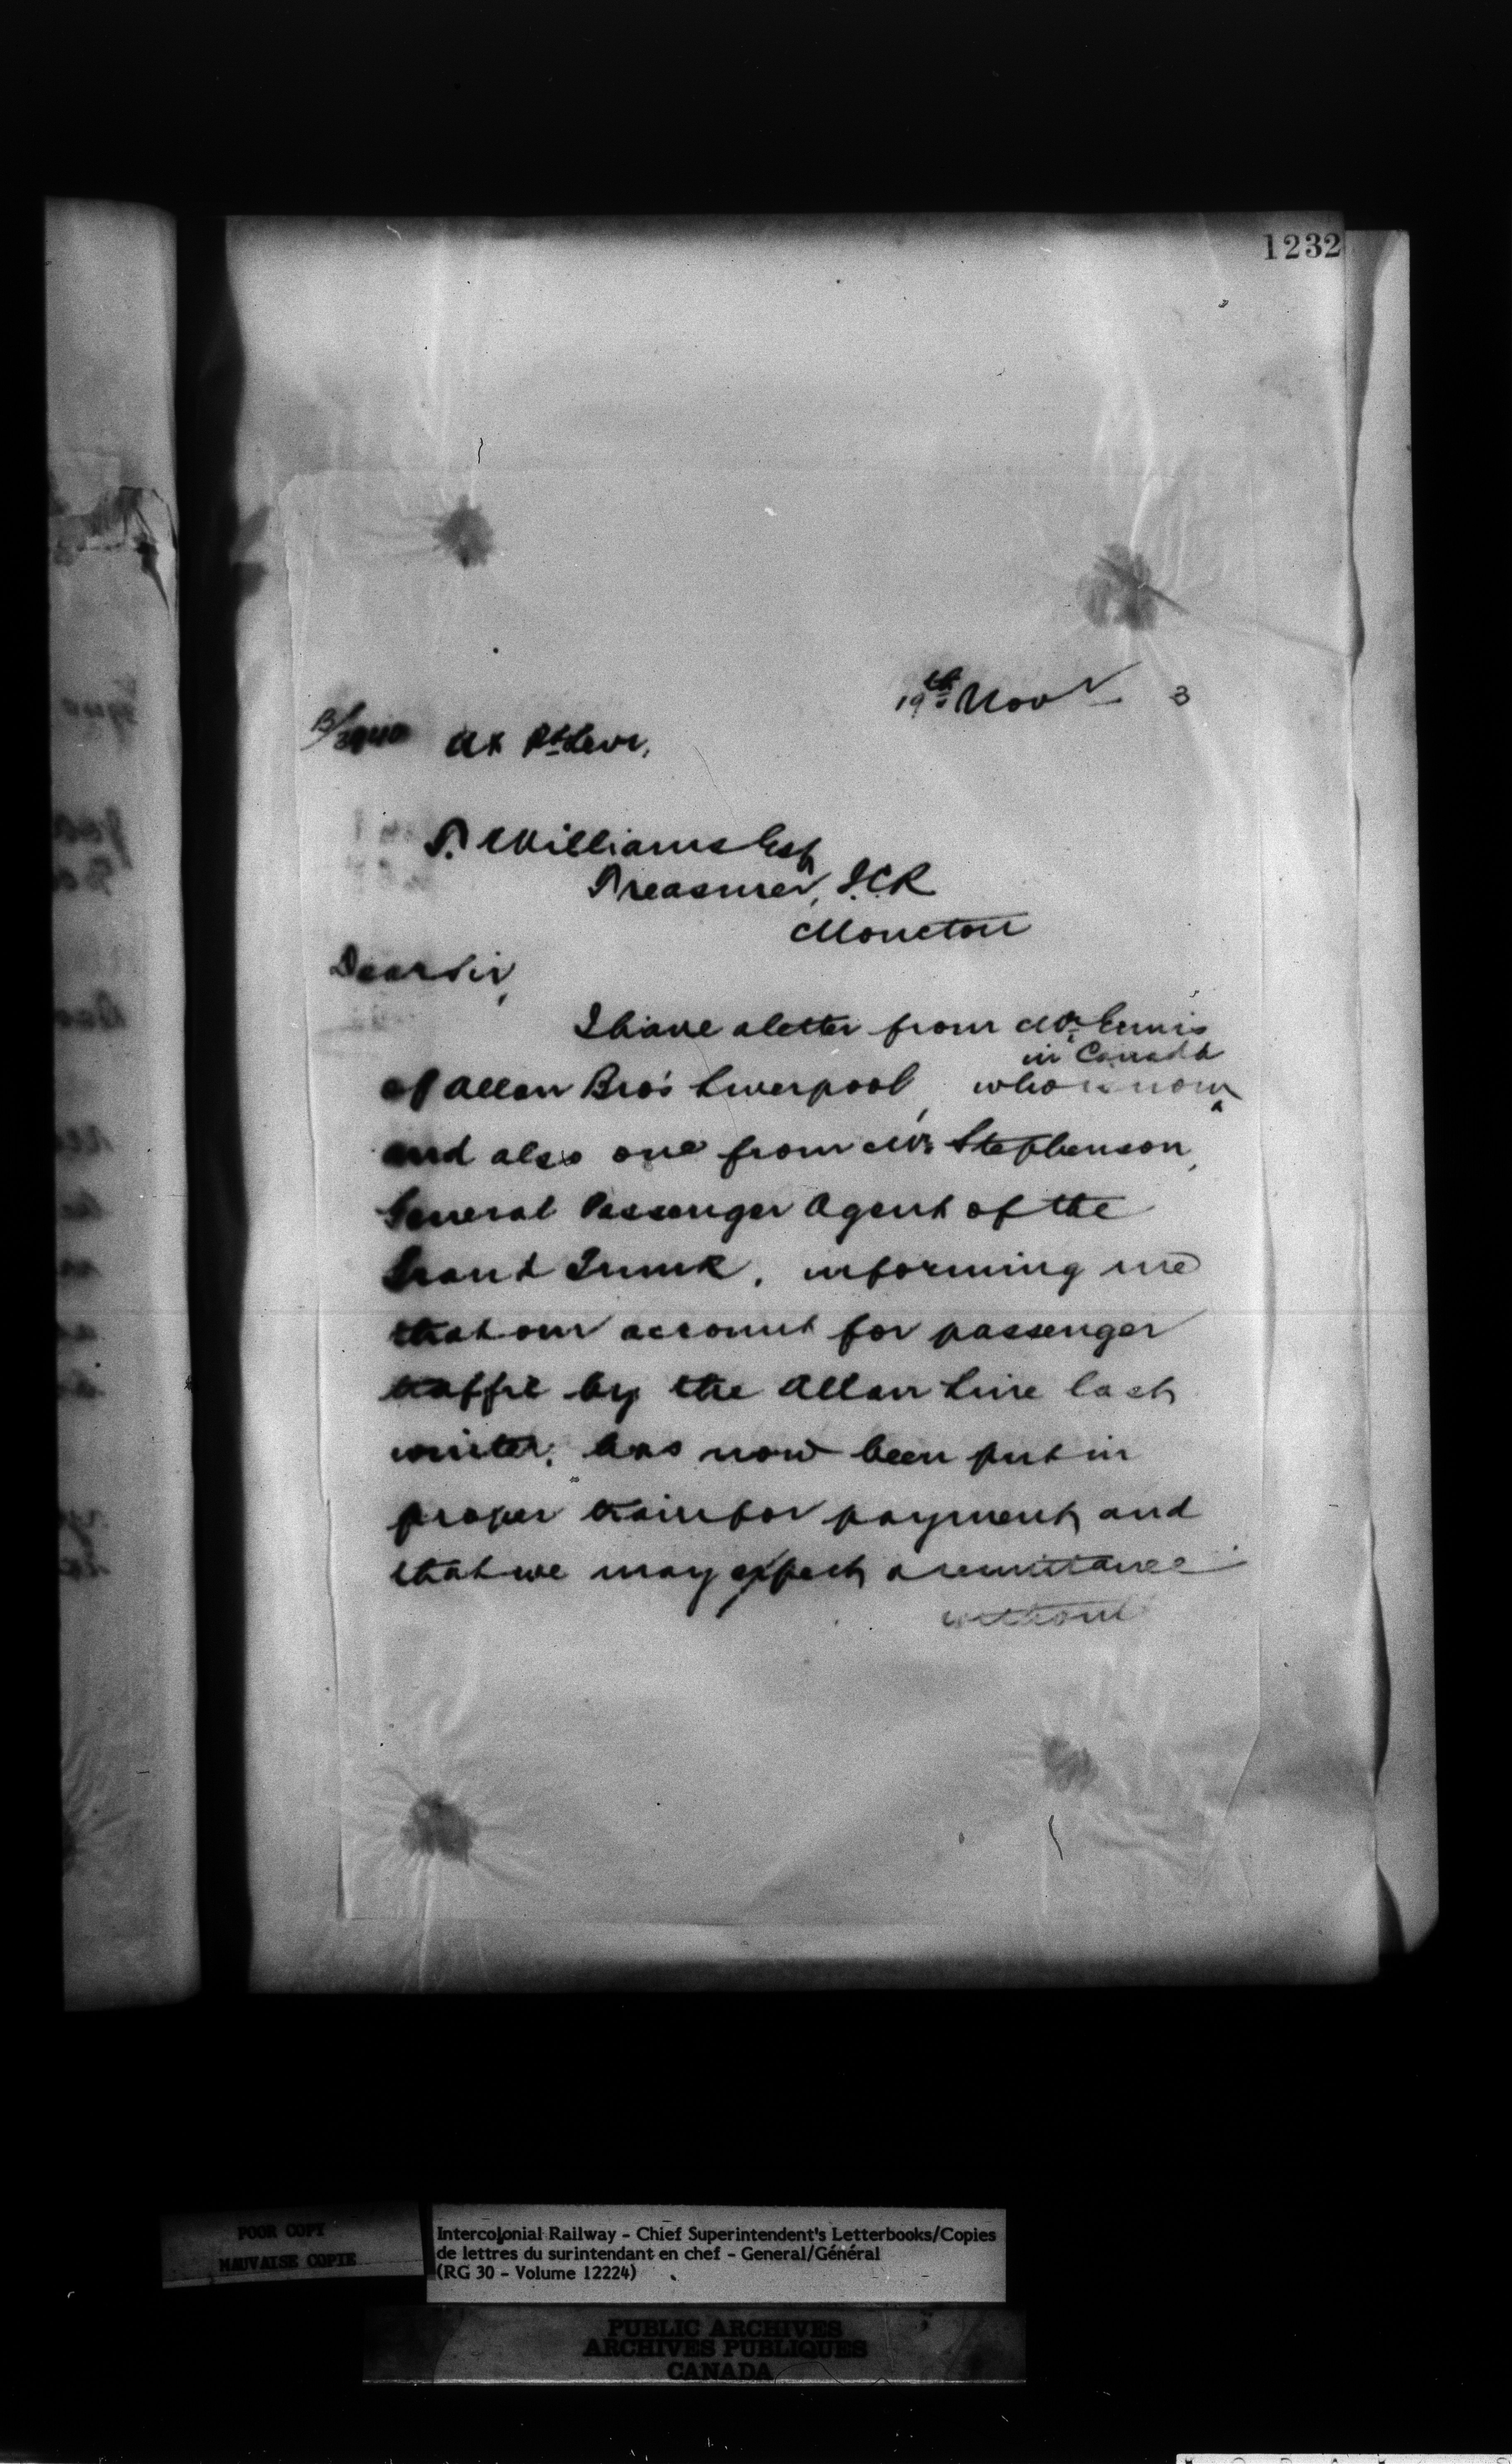 1232
19th Novr 3
B/3940 At Pt Levi,
T. Williams Esq
Treasurer, I.C.R
Moncton
Dear Sir,
I have a letter from Mr. Ennis
in Canada
of Allan Bro's Liverpool, who is now ^
and also one from Mr. Stephenson,
General Passenger Agent of the
Grand Trunk, informing me
that our account for passenger
traffic by the Allan Line last
winter, has now been put in
proper train for payment, and
that we may expect a remittance
without
POOR COPY
MAUVAISE COPIE
Intercolonial Railway - Chief Superintendent's Letterbooks/Copies
de lettres du surintendant en chef - General/Général
(RG 30 - Volume 12224)
PUBLIC ARCHIVES
ARCHIVES PUBLIQUES
CANADA